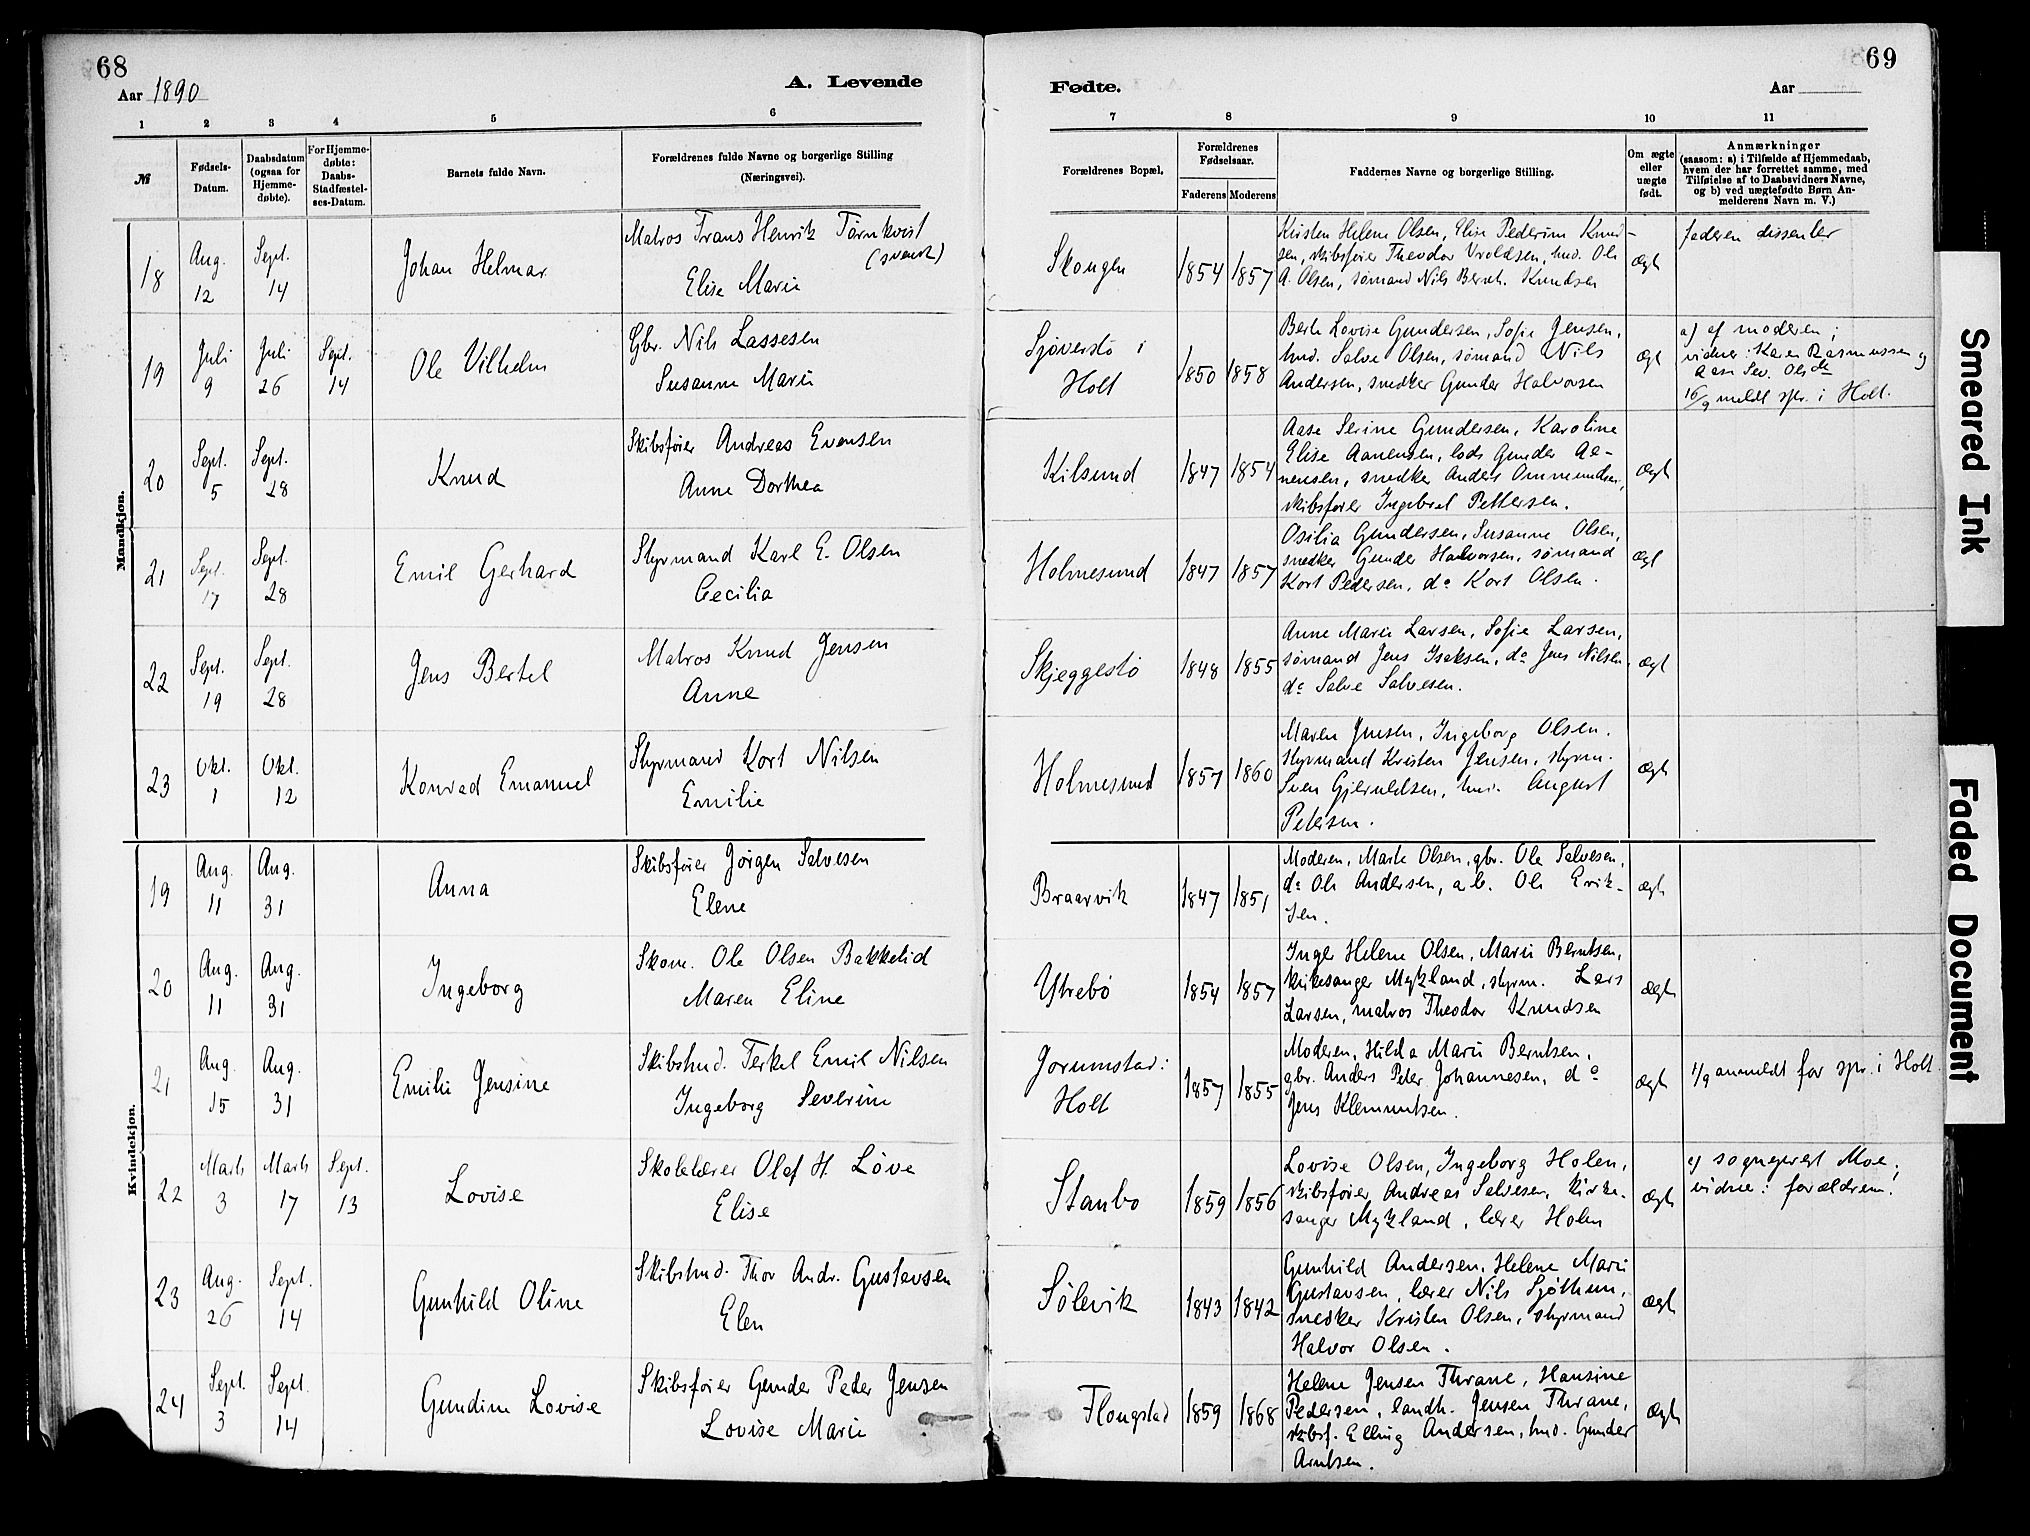 68
Aar 1890
A. Levende
1 2 3 4 5 6
№
Fødsels-
Datum.
Daabsdatum
(ogsaa for
Hjemme-
døbte).
For Hjemme-
døbte:
Daabs-
Stadfæstel-
ses-Datum.
Barnets fulde Navn.
Forældrenes fulde Navne og borgerlige Stilling
(Næringsvei).
69
Fødte.
Aar
7 8 9 10 11
Forældrenes Bopæl.
Forældrenes
Fødselsaar.
Faderens Moderens
Faddernes Navne og borgerlige Stilling.
Om ægte
eller
uægte
født.
Anmærkninger
(saasom: a) i Tilfælde af Hjemmedaab,
hvem der har forrettet samme, med
Tilføielse af to Daabsvidners Navne,
og b) ved uægtefødte Børn An-
melderens Navn m. V.)
Mandkjøn.
18
Aug.
12
Sept.
14
Johan Helmar
Matros Frans Henrik Törnkvist
(svensk)
Elise Marie
Skougen
1854 1857
Kirsten Helene Olsen, Elise Pederine Knud-
sen, skibsfører Theodor Vroldsen, hmd. Ole
A. Olsen, sømand Nils Bernh. Knudsen
ægte
faderen dissenter
19
Juli
9
Juli
26
Sept.
14
Ole Vilhelm
Gbr. Nils Lassesen
Susanne Marie
Sjøverstø i
Holt
1850 1858
Berte Lovise Gundersen, Sofie Jensen,
hmd. Salve Olsen, sømand Nils
Andersen, snedker Gunder Halvorsen
ægte
a) af moderen;
vidner: Karen Rasmussen og
Aase Sev. Olsdr
16/9 meldt spr. i Holt.
20
Sept.
5
Sept.
28
Knud
Skibsfører Andreas Evensen
Anne Dorthea
Kilsund
1847 1854
Aase Serine Gundersen, Karoline
Elise Aanensen, lods Gunder Aa-
nensen, snedker Anders Ommundsen,
skibsfører Ingebret Pettersen.
ægte
21
Sept.
17
Sept.
28
Emil Gerhard
Styrmand Karl E. Olsen
Cecilia
Holmesund
1847 1857
Osilia Gundersen, Susanne Olsen,
snedker Gunder Halvorsen, sømand
Kort Pedersen, do Kort Olsen.
ægte
22
Sept.
19
Sept.
28
Jens Bertel
Matros Knud Jensen
Anne
Skjeggestø
1848 1855
Anne Marie Larsen, Sofie Larsen,
sømand Jens Isaksen, do Jens Nilsen,
do Salve Salvesen.
ægte
23
Okt.
1
Okt.
12
Konrad Emanuel
Styrmand Kort Nilsen
Emilie
Holmesund
1857 1860
Maren Jensen, Ingeborg Olsen.
styrmand Kristen Jensen, styrm.
Sven Gjeruldsen, hmd. August
Petersen.
ægte
Kvindekjøn.
19
Aug.
11
Aug.
31
Anna
Skibsfører Jørgen Salvesen
Elene
Braarvik
1847 1851
Moderen, Marte Olsen, gbr. Ole Salvesen,
do Ole Andersen, arb. Ole Erik-
sen.
ægte
20
Aug.
11
Aug.
31
Ingeborg
Skom. Ole Olsen Bakkelid
Maren Eline
Ytrebø
1854 1857
Inger Helene Olsen, Marie Berntsen,
kirkesanger Mykland, styrm. Lars
Larsen, matros Theodor Knudsen
ægte
21
Aug.
15
Aug.
31
Emilie Jensine
Skibstmd. Terkel Emil Nilsen
Ingeborg Severine
Gorumstad i
Holt
1857 1855
Moderen, Hilda Marie Berntsen,
gbr. Anders Peter Johannesen, do
Jens Klemmetsen.
ægte
1/9 anmeldt for spr. i Holt.
22
Marts
3
Marts
17
Sept.
13
Lovise
Skolelærer Olaf H. Løve
Elise
Staubø
1859 1856
Lovise Olsen, Ingeborg Holen,
skibsfører Andreas Salvesen, kirke-
sanger Mykland, lærer Holen
ægte
a) sogneprest Moe;
vidner: forældrene.
23
Aug.
26
Sept.
14
Gunhild Oline
Skibstmd. Thor Andr. Gustavsen
Elen
Sølevik
1843 1842
Gunhild Andersen, Helene Marie
Gustavsen, lærer Nils Sjøthun,
snedker Kristen Olsen, styrmand
Halvor Olsen.
ægte
24
Sept.
3
Sept.
14
Gundine Lovise
Skibsfører Gunder Peder Jensen
Lovise Marie
Flougstad
1859 1868
Helene Jensen Thrane, Hansine
Pedersen, landh. Jensen Thrane,
skibsf. Elling Andersen, hmd. Gunder
Arntsen.
ægte
Smeared Ink
Faded Document